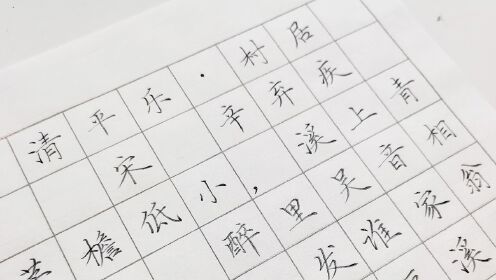 清平乐·村居
宋 辛弃疾
茅檐低小,溪上青
醉里吴音相
发谁家翁
溪